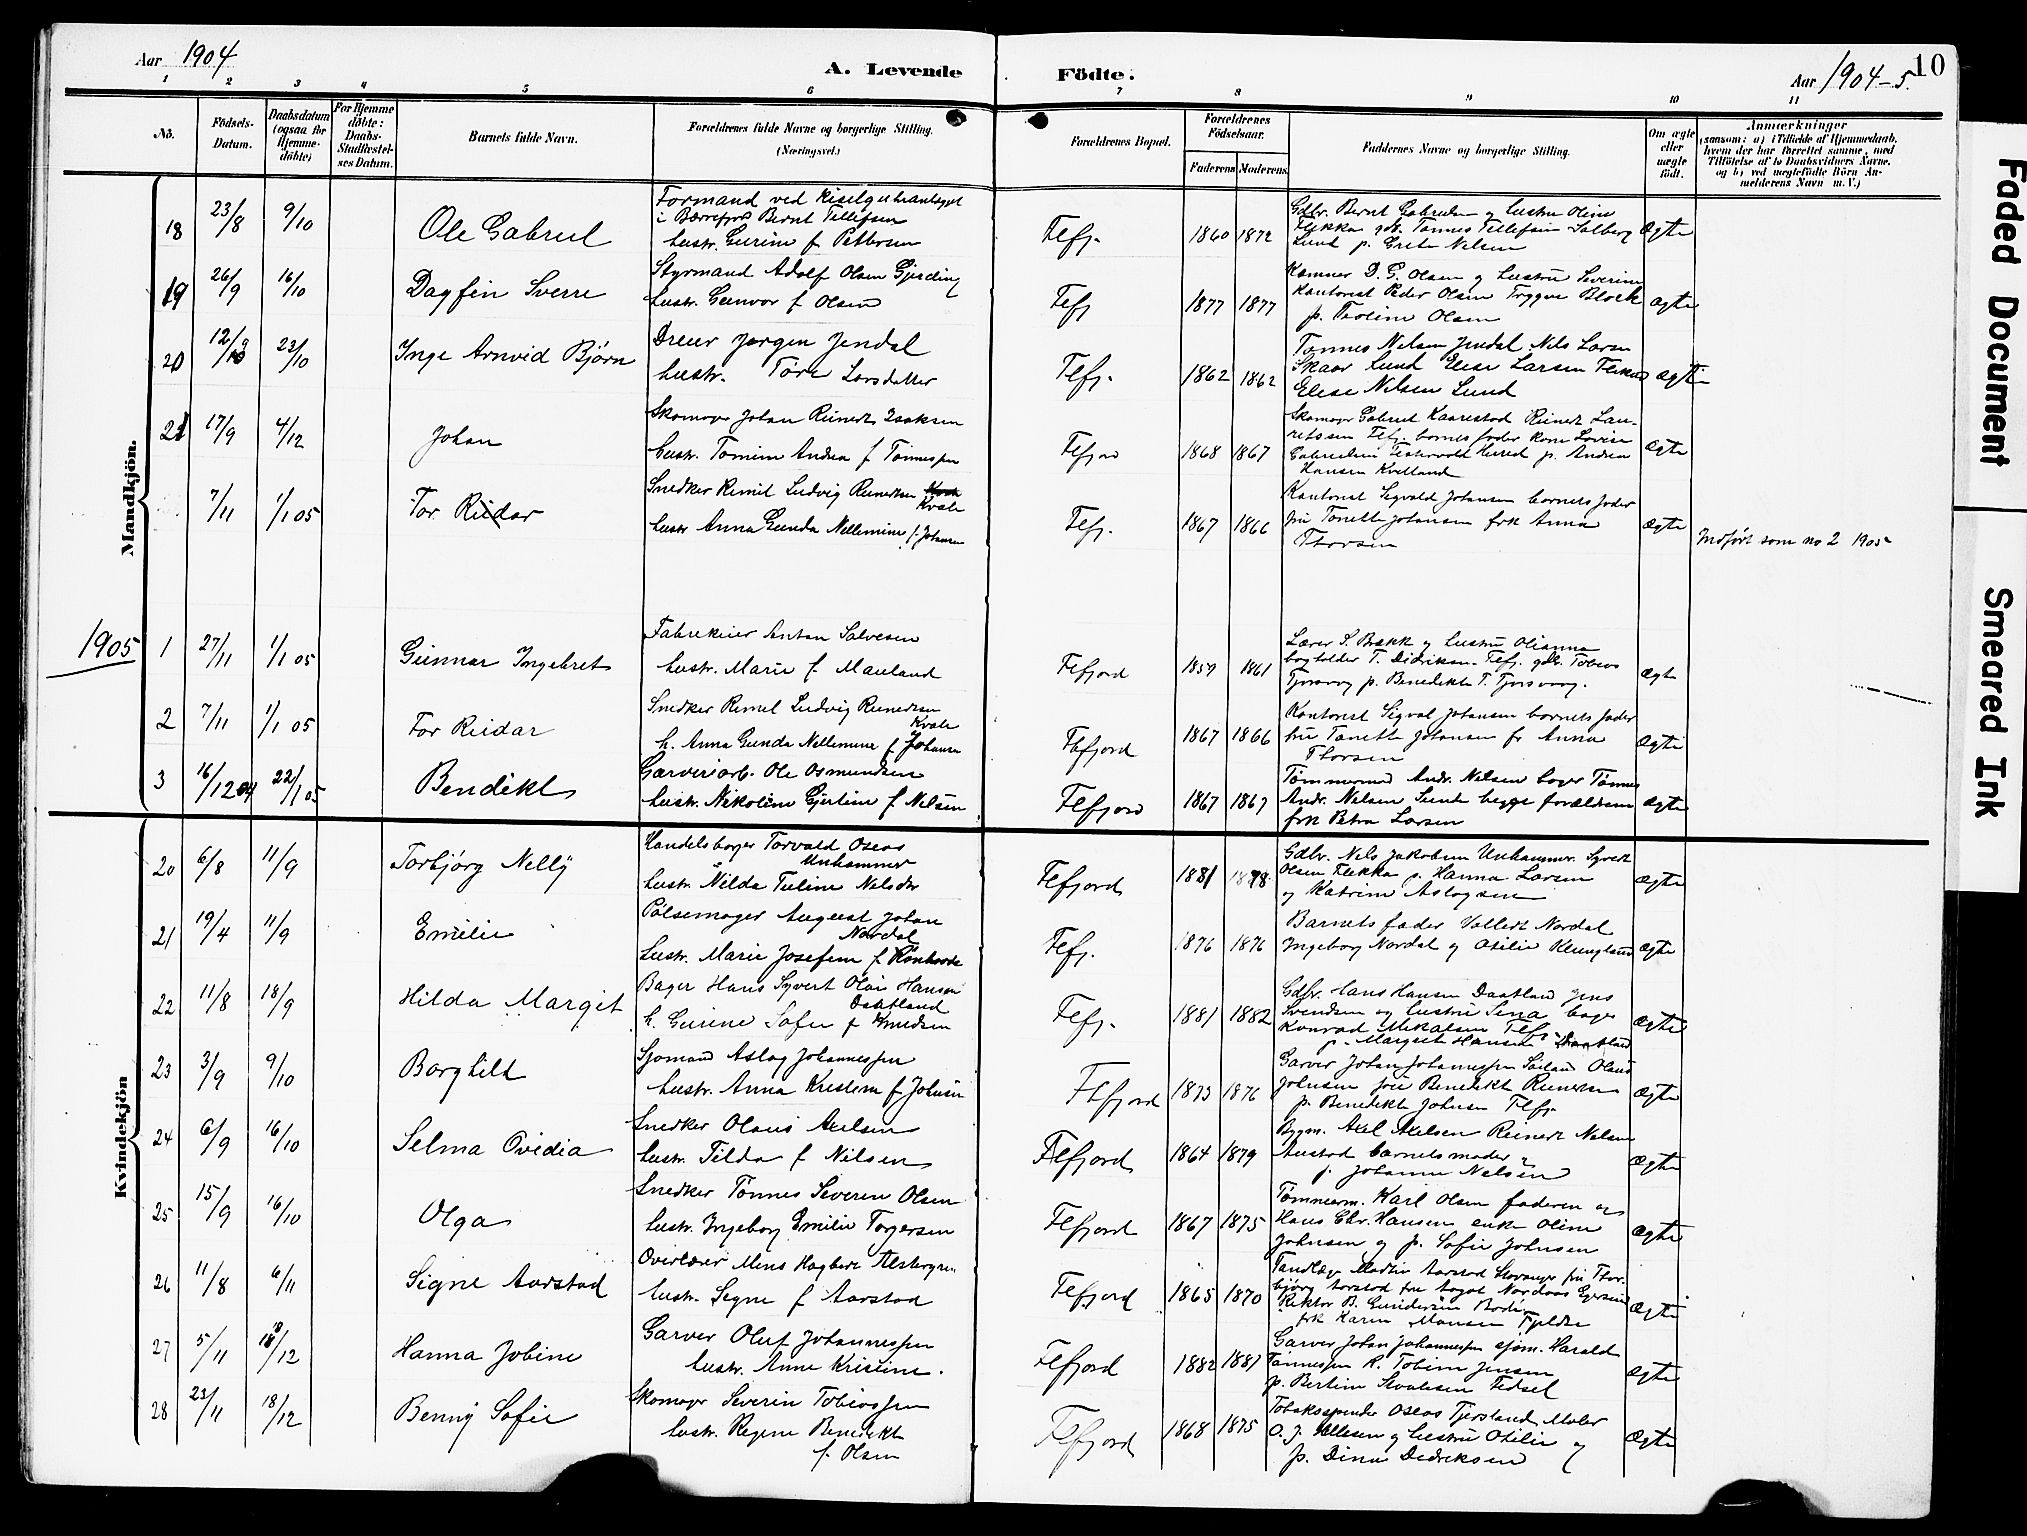 Aar 1904
A. Levende Födte.
Aar 1904-5.
10
1 2 3 4 5 6 7 8 9 10 11
No.
Födsels-Datum.
Daabsdatum (ogsaa for Hjemme-döbte)
For Hjemme döbte: Daabs-Stadfæstel-ses Datum.
Barnets fulde Navn.
Forældrenes fulde Navne og borgerlige Stilling. (Næringsvei.)
Forældrenes Bopæl.
Forældrenes Födselsaar.
Faderens Moderens
Faddernes Navne og borgerlige Stilling.
Om ægte eller uægte födt.
Anmærkninger
(saasom: a) i Tilfælde af Hjemmedaab,
hvem der har forrettet samme, med
Tilföielse af to Daabsvidners Navne,
og b) ved uægtefödte Börn An-
melderens Navn m.V.)
Mandkjön.
18 23/8 9/10 Ole Gabriel
Formand ved Kiselguhranlegget
i Bærrefjord Bernt Tellefsen
hustr. Gurine f Pettersen
Flefj. 1860 1872
Gdbr. Bernt Gabrielsen og hustru Oline
Flikka gdb. Tønnes Tellefsen Solberg
Lund p. Grete Nilsen
Ægte
19 26/9 16/10 Dagfin Sverre
Styrmand Adolf Olsen Gjerding
hustr. Gunvor f Olsen
Flefj 1877 1877
Kæmner D. G. Olsen og hustru Severine
Kontorist Peder Olsen Trygve Block
p. Teoline Olsen
Ægte
20 12/9 23/10 Inge Arnvid Bjørn
Dreier Jørgen Jendal
hustr. Tøre Larsdatter
Flefj. 1862 1862
Tønnes Nilsen Jendal Nils Larsen
Skaar Lund Elise Larsen
Elise Nilsen Lund
Ægte
21 17/9 4/12 Johan
Skomager Johan Reinert Isaksen
hustr. Tomine Andrea f Tønnessen
Flefjord 1868 1867
Skomager Gabriel Kaarestad Reinert Lau-
ritssen Flefj. barnets fader kone Lovise
Gabrielsen Herred p. Andrea
Hansen Kvelland
Ægte
7/11 1/1 05 Tor Reidar
Snedker Remil Ludvig Reinertsen
Kvale
hustr Anna Gunda Nellemine f. Johansen
Flefj. 1867 1866
Kontorist Sigvald Johansen barnets fader
fru Tonette Johansen frk Anna
Thorsen
Ægte
Indført som no 2 1905
1905 1 27/11 1/1 05 Gunnar Ingebret
Fabrikeier Anton Salvesen
hustr. Marie f. Mauland
Flefjord 1859 1861
Lærer S. Bakk og hustru Olianna
bogholder T. Didriksen Flefj. gdb. Tobias
Tjørsvaag p. Benedikte T. Tjørsvaag.
Ægte
2 7/11 1/1 05 Tor Reidar
Snedker Remil Ludvig Reinertsen
Kvale
h. Anna Gunda Nellemine f Johansen
Flefjord 1867 1866
Kontorist Sigval Johansen barnets fader
fru Tonette Johansen fr Anna
Thorsen
Ægte
3 16/12 04 22/1 05 Bendikt
Garveriarb. Ole Osmundsen
hustr. Nikoline Gjertine f Nilsen
Flefjord 1867 1867
Tømmermd Andr. Nilsen bager Tønnes
Andr. Nilsen Sunde begge forældrene
frk Petra Larsen
Ægte
Kvindekjön
20 6/8 11/9 Torbjørg Nelly
Handelsborger Torvald Oseas
Unhammer
hustr. Nilda Tuline Nilsdtr
Flefjord 1881 1878
Gdbr. Nils Jakobsen Unhammer. Syvert
Olsen Flikka p. Hanna Larsen
og Katrine Aslagsen
Ægte
21 19/4 11/9 Emilie
Pølsemager August Johan
Nordal
hustr. Marie Josefine f
Flefj. 1876 1876
Barnets fader Vallert Nordal
Ingeborg Nordal og Otilie Klungland
Ægte
22 11/8 18/9 Hilda Margit
Bager Hans Syvert Olai Hansen
Daatland
h. Gurine Sofie f Knudsen
Flefj. 1881 1882
Gdbr. Hans Hansen Daatland Jens
Svendsen og hustru Sina bager
Konrad Mikalsen Flefj.
p. Margrete Hansen Daatland
Ægte
23 3/9 9/10 Borghild
Sjømand Aslag Johannessen
hustr. Anna Kristine f Johnsen
Flefjord 1873 1876
Garver Johan Johannessen Olaus
Johnsen fru Benedikte Reinertsen
p. Benedikte Johnsen Flefj.
Ægte
24 6/9 16/10 Selma Ovidia
Snedker Olaus Axelsen
hustr. Tilda f Nilsen
Flefjord 1864 1879
Bygm. Axel Axelsen Reinert Nilsen
Austad barnets moder og
p. Johanne Nilsen
Ægte
25 15/9 16/10 Olga
Snedker Tønnes Severin Olsen
hustr. Ingeborg Emilie Torgersen
Flefjord 1867 1875
Tømmerm. Karl Olsen faderen og
Hans Chr. Hansen enke Oline
Johnsen og p. Sofie Johnsen
Ægte
26 11/8 6/11 Signe Aarstad
Overlærer Mons Hagbart
hustr. Signe f Aarstad
Flefjord 1865 1870
Tandlæge Martin Aarstad Stavanger fru Thor-
bjørg Aarstad fru Aagot Nordaas
Rektor B. Gundersen Bodø
frk Karen Monsen
Ægte
27 5/11 18/12 Hanna Jobine
Garver Oluf Johannessen
hustr. Anne Kristine.
Flefjord 1882 1881
Garver Johan Johannessen sjøm. Harald
Tønnessen K. Tobine Jensen
p. Bertine Fedsel
Ægte
28 23/11 18/12 Benny Sofie
Skomager Severin Tobiassen
hustr. Regine Benedikte
f. Olsen
Flefjord 1868 1875
Tobaksspinder Oseas Tjersland Maler
O. J. Allesen og hustru Otilie og
p. Dina Didriksen
Ægte
Faded Document
Smeared Ink